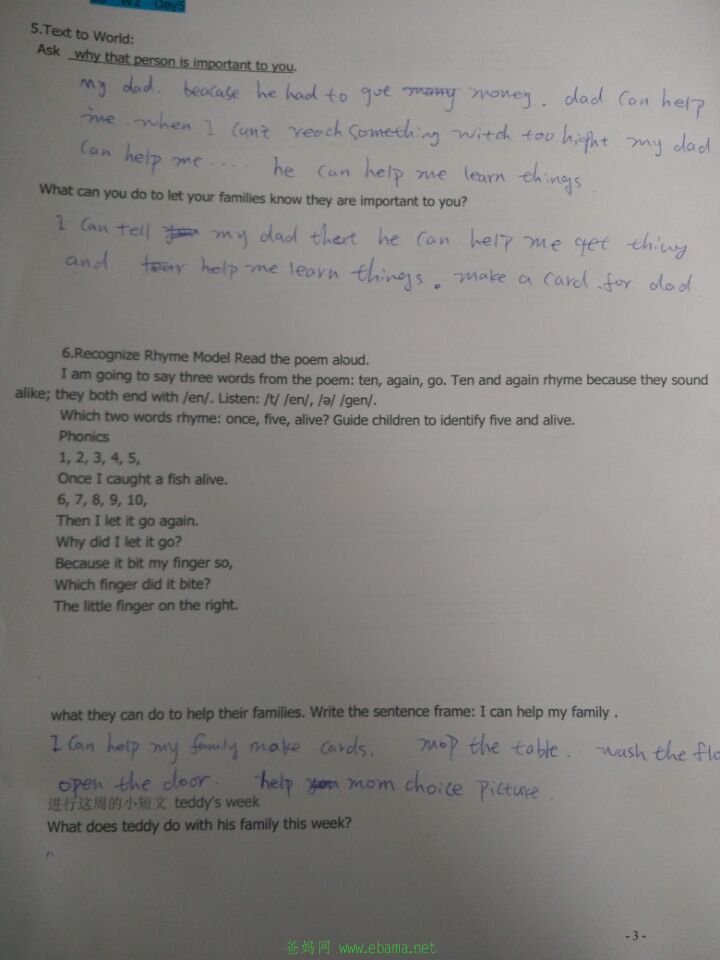 W2 Day5
5.Text to World:
Ask why that person is important to you.
my dad. beacase he had to got many money. dad can help
me. when I can't reach something witch too hight my dad
can help me.... he can help me learn things.
What can you do to let your families know they are important to you?
I can tell you my dad that he can help me get thing
and help me learn things. make a card for dad
6.Recognize Rhyme Model Read the poem aloud.
I am going to say three words from the poem: ten, again, go. Ten and again rhyme because they sound
alike; they both end with /en/. Listen: /t/ /en/, /ə/ /gen/.
Which two words rhyme: once, five, alive? Guide children to identify five and alive.
Phonics
1, 2, 3, 4, 5,
Once I caught a fish alive.
6, 7, 8, 9, 10,
Then I let it go again.
Why did I let it go?
Because it bit my finger so,
Which finger did it bite?
The little finger on the right.
what they can do to help their families. Write the sentence frame: I can help my family .
I can help my family make cards. mop the table. wash the flo
open the door. help you mom choice picture.
进行这周的小短文 teddy's week
What does teddy do with his family this week?
- 3 -
爸妈网 www.ebama.net